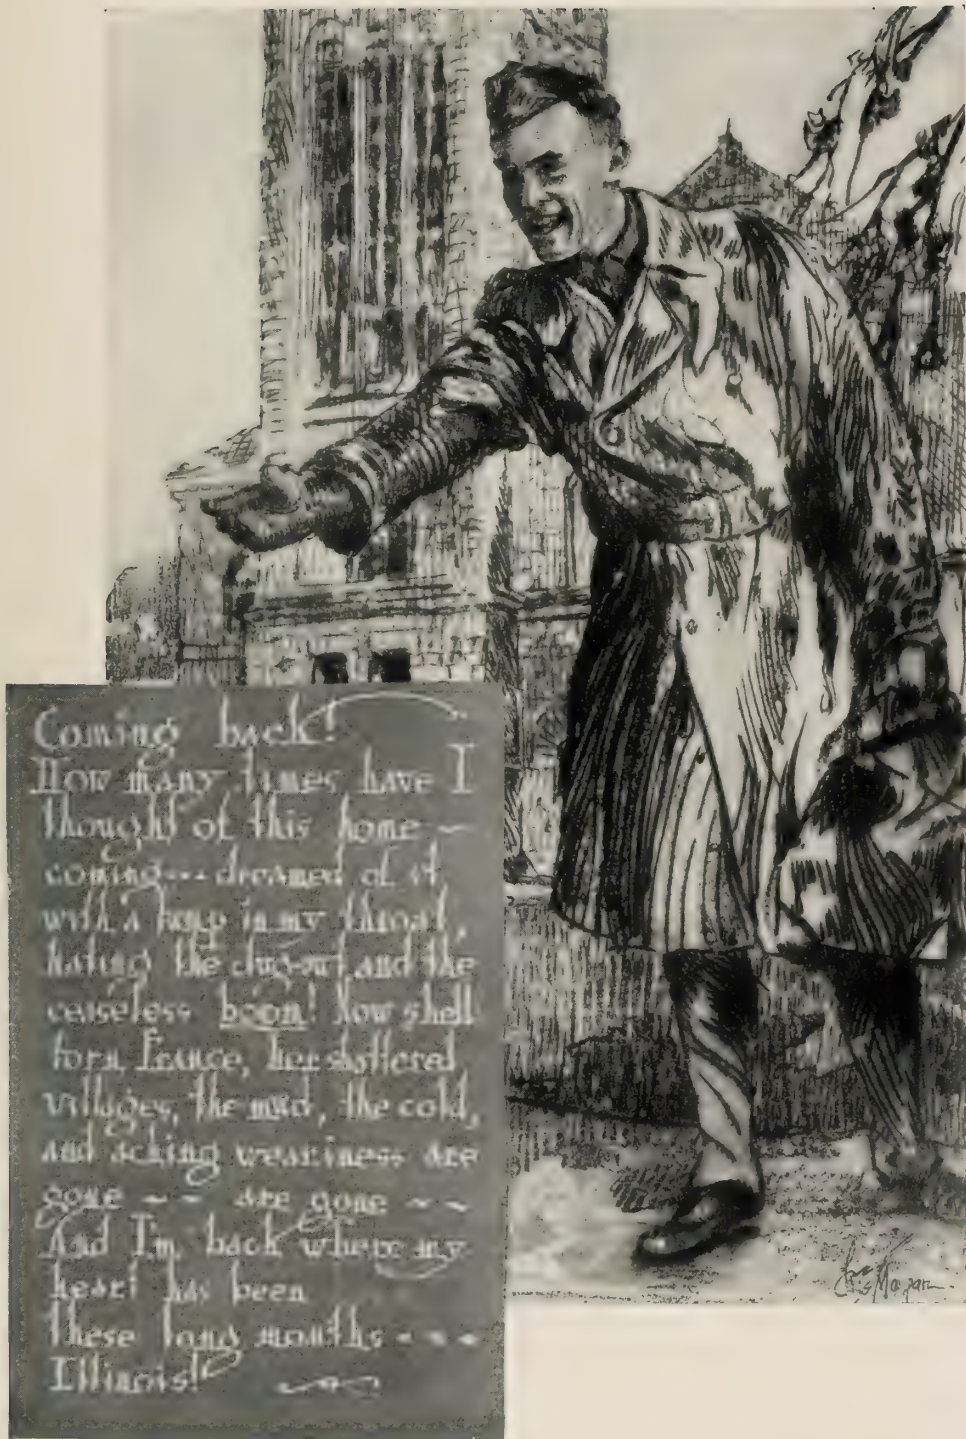 Coming back!
How many times have I
thought of this home ~
coming --- dreamed of it
with a lump in my throat,
hating the dug-out and the
ceaseless boom! Now shell
torn France, her shattered
villages, the mud, the cold,
and aching weariness are
gone ~ ~ are gone ~ ~
And I'm back where my
heart has been
these long months - - -
Illinois!
Morgan